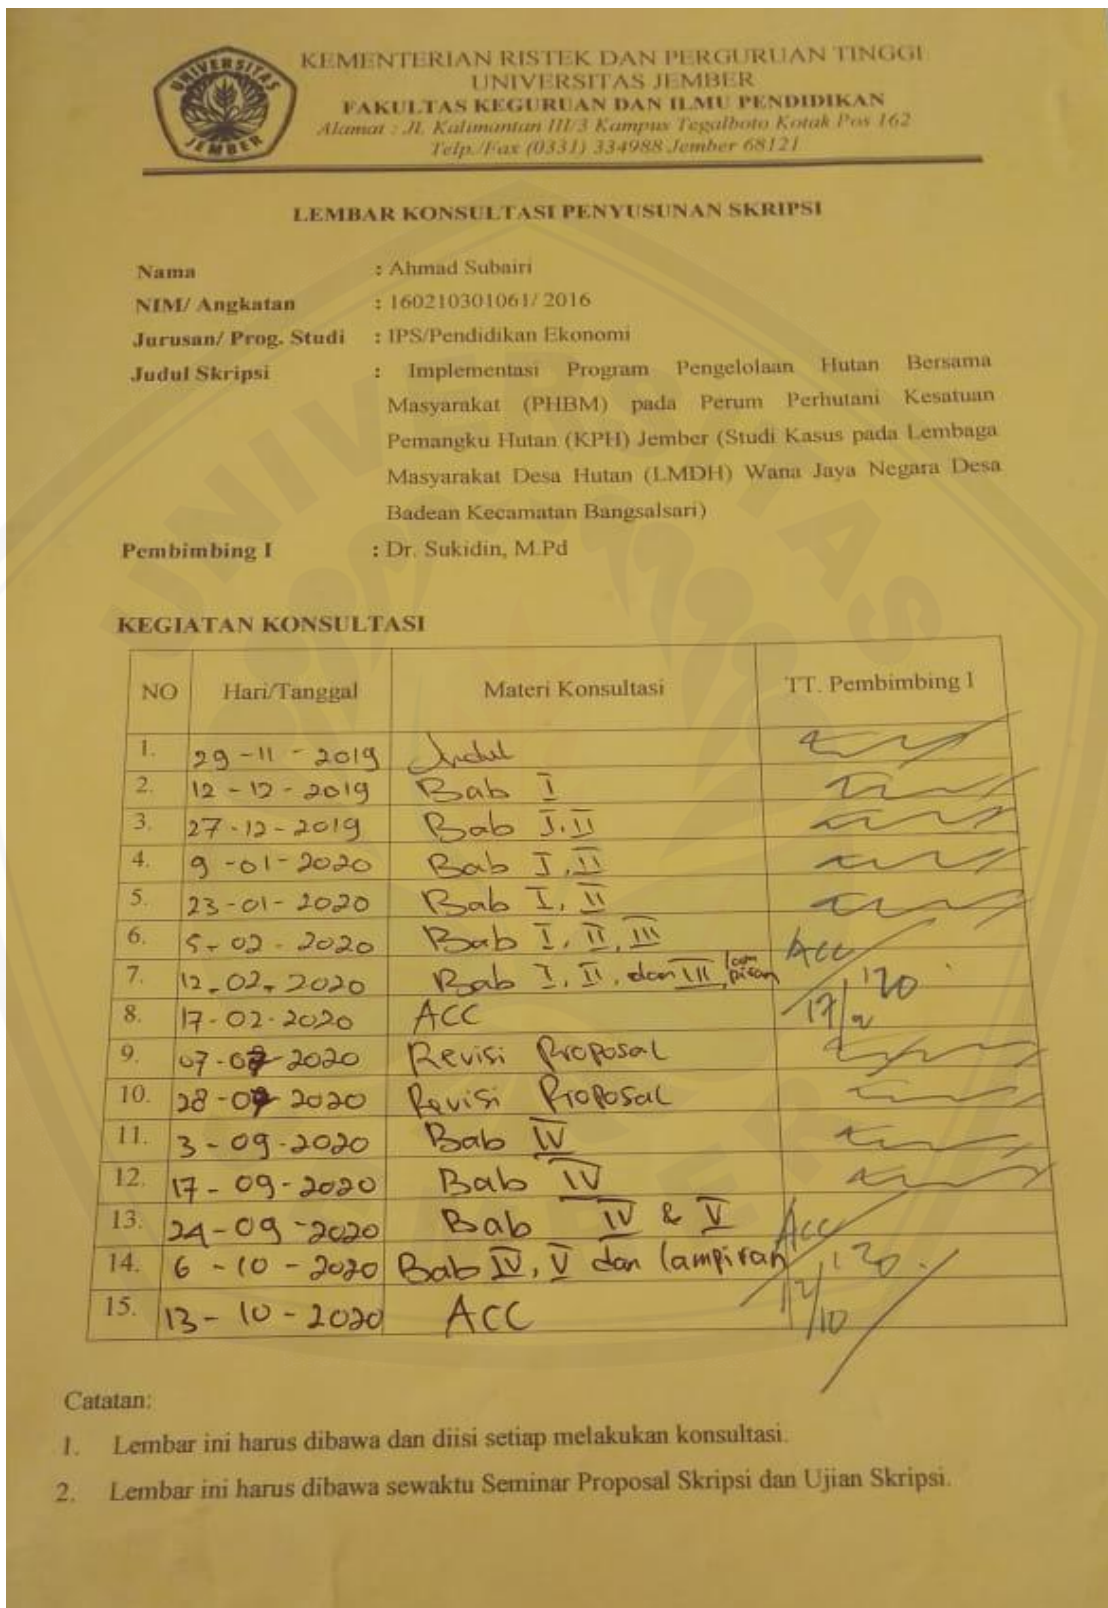 UNIVERSITAS
JEMBER
KEMENTERIAN RISTEK DAN PERGURUAN TINGGI
UNIVERSITAS JEMBER
FAKULTAS KEGURUAN DAN ILMU PENDIDIKAN
Alamat : Jl. Kalimantan III/3 Kampus Tegalboto Kotak Pos 162
Telp./Fax (0331) 334988 Jember 68121
LEMBAR KONSULTASI PENYUSUNAN SKRIPSI
Nama : Ahmad Subairi
NIM/ Angkatan : 160210301061/ 2016
Jurusan/ Prog. Studi : IPS/Pendidikan Ekonomi
Judul Skripsi : Implementasi Program Pengelolaan Hutan Bersama
Masyarakat (PHBM) pada Perum Perhutani Kesatuan
Pemangku Hutan (KPH) Jember (Studi Kasus pada Lembaga
Masyarakat Desa Hutan (LMDH) Wana Jaya Negara Desa
Badean Kecamatan Bangsalsari)
Pembimbing I : Dr. Sukidin, M.Pd
KEGIATAN KONSULTASI
NO Hari/Tanggal Materi Konsultasi TT. Pembimbing I
1. 29-11-2019 Judul
2. 12-12-2019 Bab I
3. 27-12-2019 Bab I.II
4. 9-01-2020 Bab I,II
5. 23-01-2020 Bab I, II
6. 5-02-2020 Bab I, II, III ACC
7. 12-02-2020 Bab I, II, dan III lampiran
8. 17-02-2020 ACC 17/2 '20
9. 07-07-2020 Revisi Proposal
10. 28-07-2020 Revisi Proposal
11. 3-09-2020 Bab IV
12. 17-09-2020 Bab IV
13. 24-09-2020 Bab IV & V Acc
14. 6-10-2020 Bab IV, V dan lampiran
15. 13-10-2020 ACC
Catatan:
1. Lembar ini harus dibawa dan diisi setiap melakukan konsultasi.
2. Lembar ini harus dibawa sewaktu Seminar Proposal Skripsi dan Ujian Skripsi.